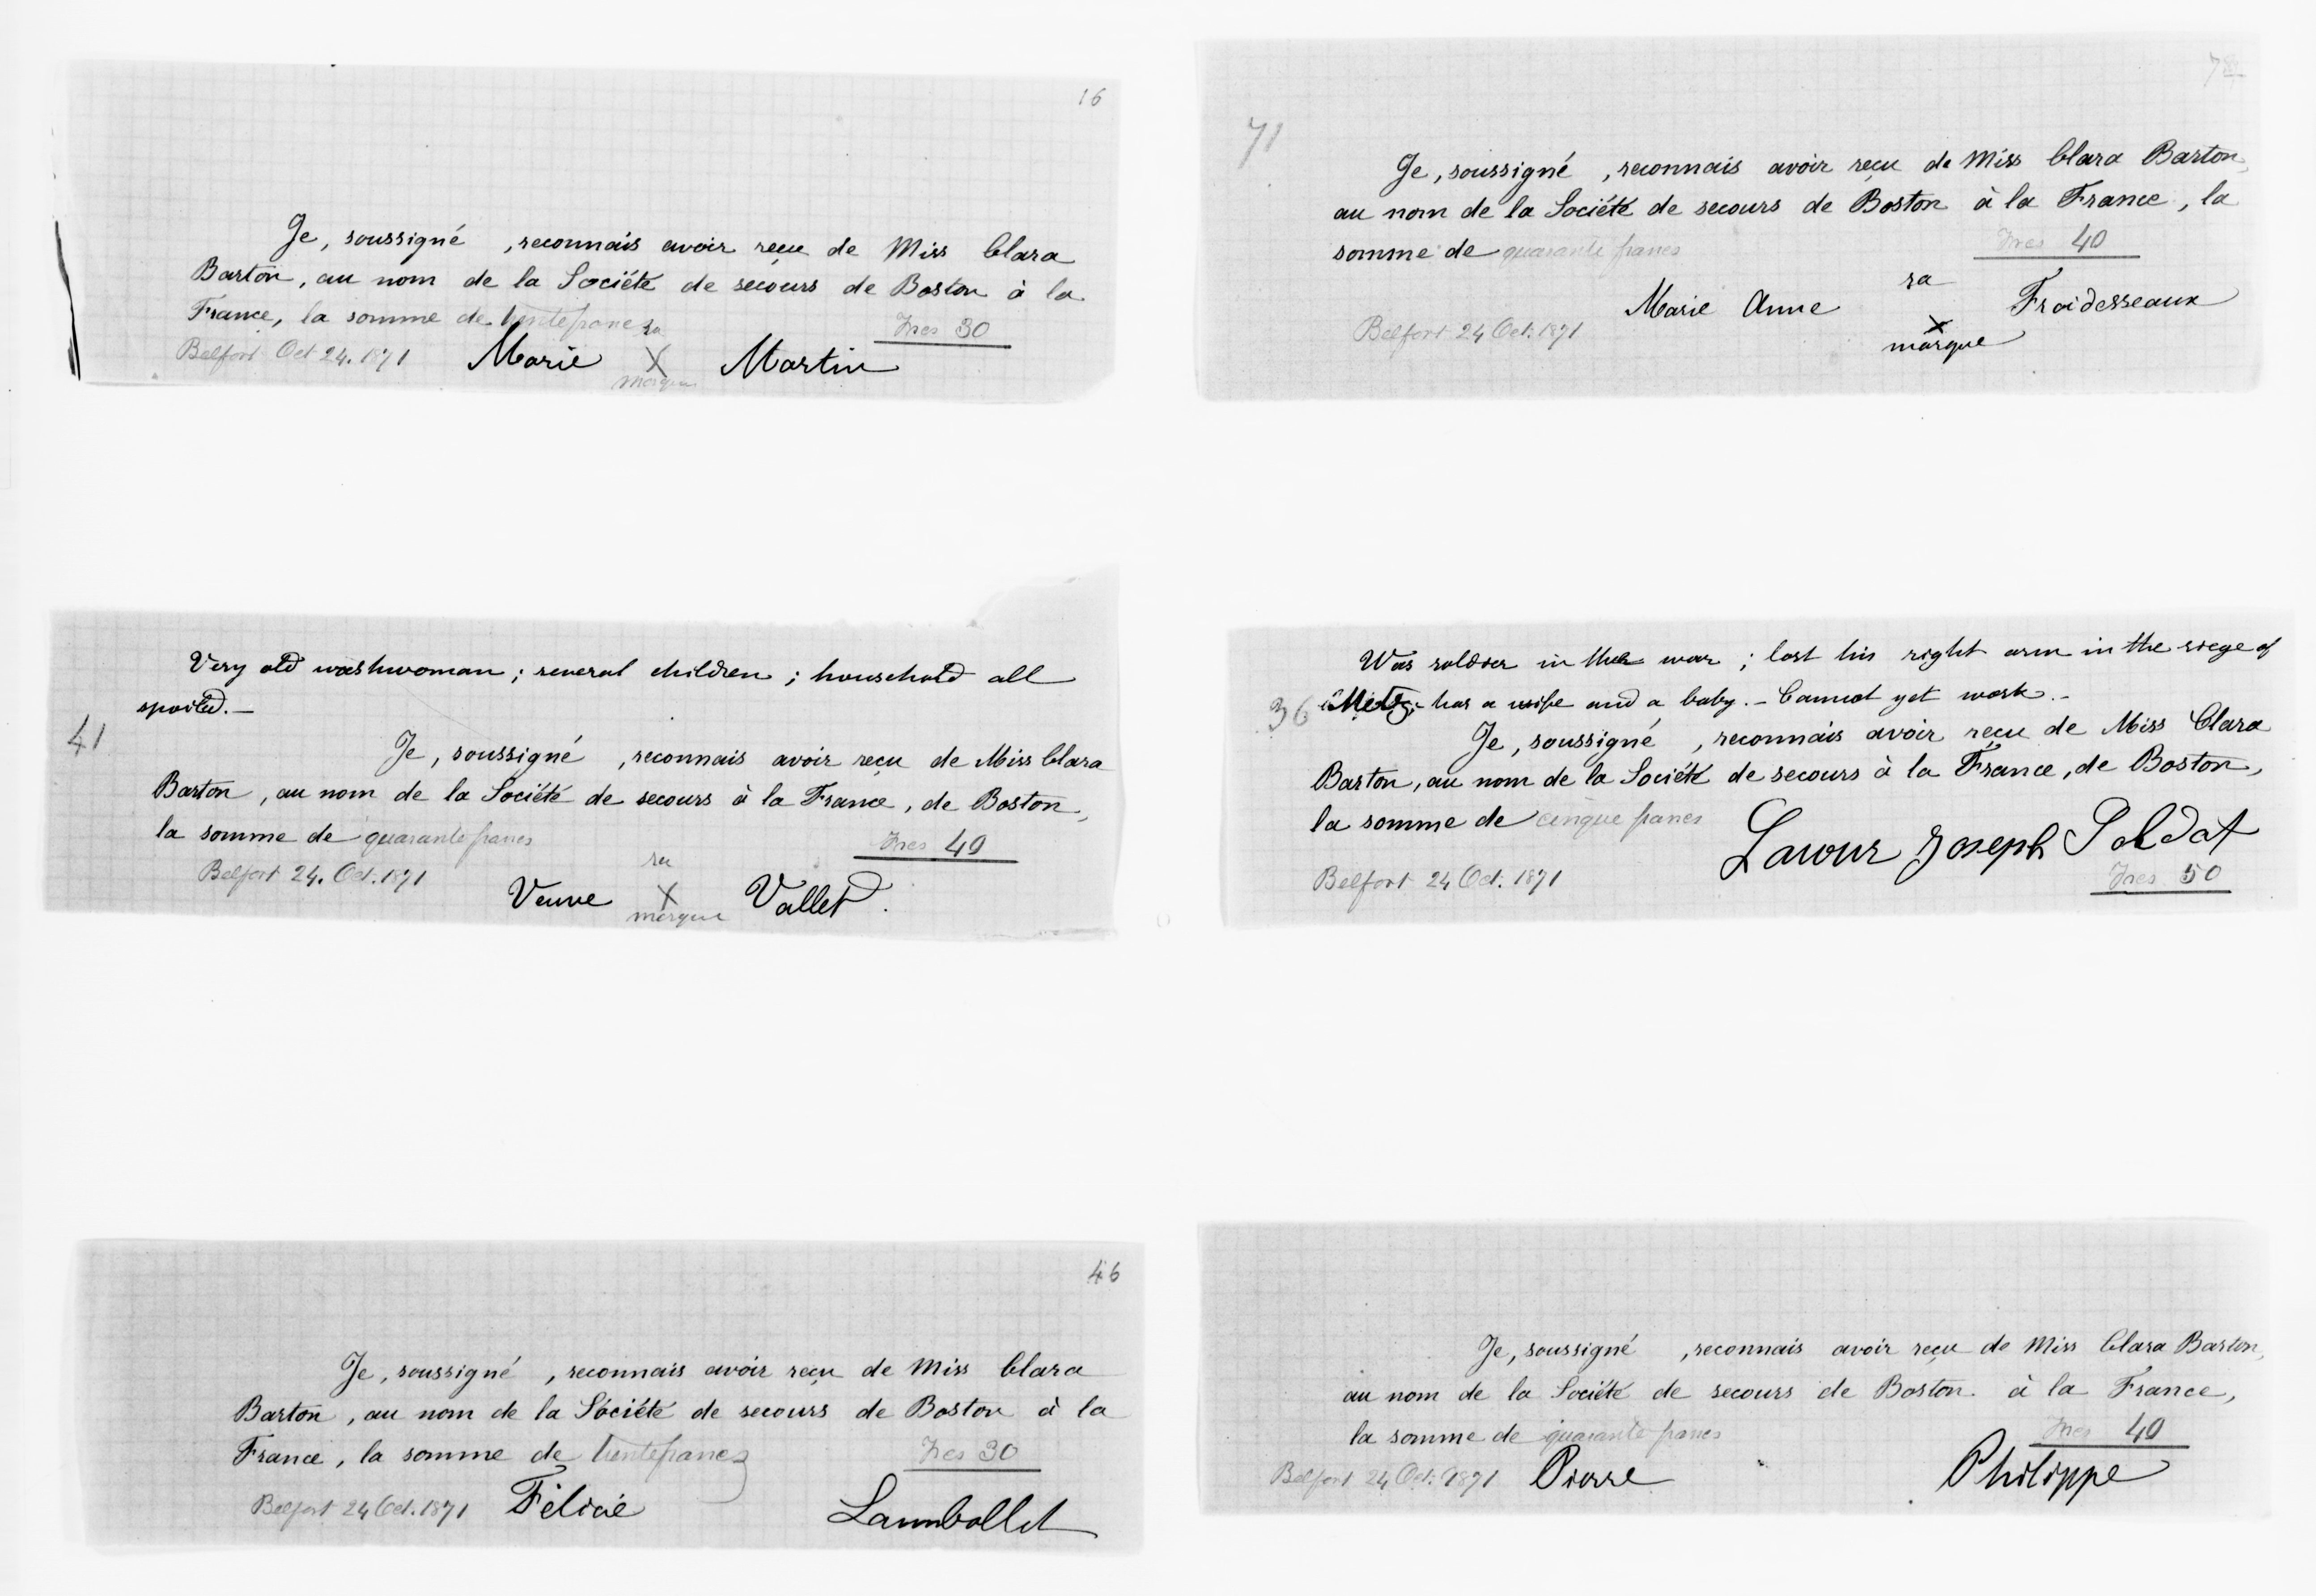 16
Je, soussigné , reconnais avoir reçu de Miss Clara
Barton, au nom de la Société de secours de Boston à la
France, la somme de trente francs
Frcs 30
sa
Belfort Oct 24. 1871 Marie X Martin
marque
71
Je, soussigné , reconnais avoir reçu de Miss Clara Barton,
au nom de la Société de secours de Boston à la France, la
somme de quarante francs
Frcs 40
sa
Marie Anne X Froidesseaux
marque
Belfort 24 Oct. 1871
Very old washwoman; several children; household all
spoiled.—
41
Je, soussigné , reconnais avoir reçu de Miss Clara
Barton, au nom de la Société de secours à la France, de Boston,
la somme de quarante francs
Frcs 40
Belfort 24. Oct. 1871
sa
Veuve X Vallet.
marque
Was soldier in the war; lost his right arm in the siege of
36 Metz; has a wife and a baby.— Cannot yet work.—
Je, soussigné , reconnais avoir reçu de Miss Clara
Barton, au nom de la Société de secours à la France, de Boston,
la somme de cinque francs
Joseph Soldat
Belfort 24 Oct. 1871
Frcs 50
46
Je, soussigné , reconnais avoir reçu de Miss Clara
Barton, au nom de la Société de secours de Boston à la
France, la somme de trente francs
Frcs 30
Belfort 24 Oct. 1871 Félicie Lambollet
Je, soussigné , reconnais avoir reçu de Miss Clara Barton,
au nom de la Société de secours de Boston à la France,
la somme de quarante francs
Frcs 40
Belfort 24 Oct. 1871 Pierre Philippe